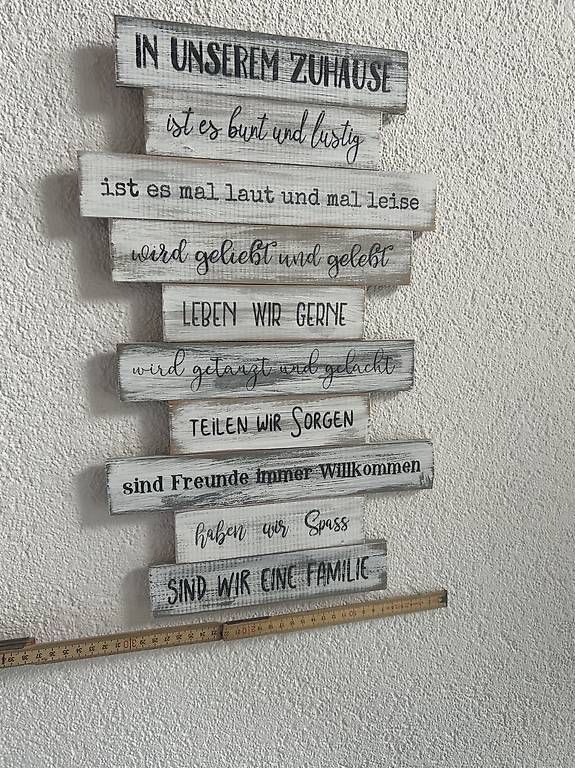 IN UNSEREM ZUHAUSE
ist es bunt und lustig
ist es mal laut und mal leise
wird geliebt und gelebt
LEBEN WIR GERNE
wird getanzt und gelacht
TEILEN WIR SORGEN
sind Freunde immer Willkommen
haben wir Spass
SIND WIR EINE FAMILIE